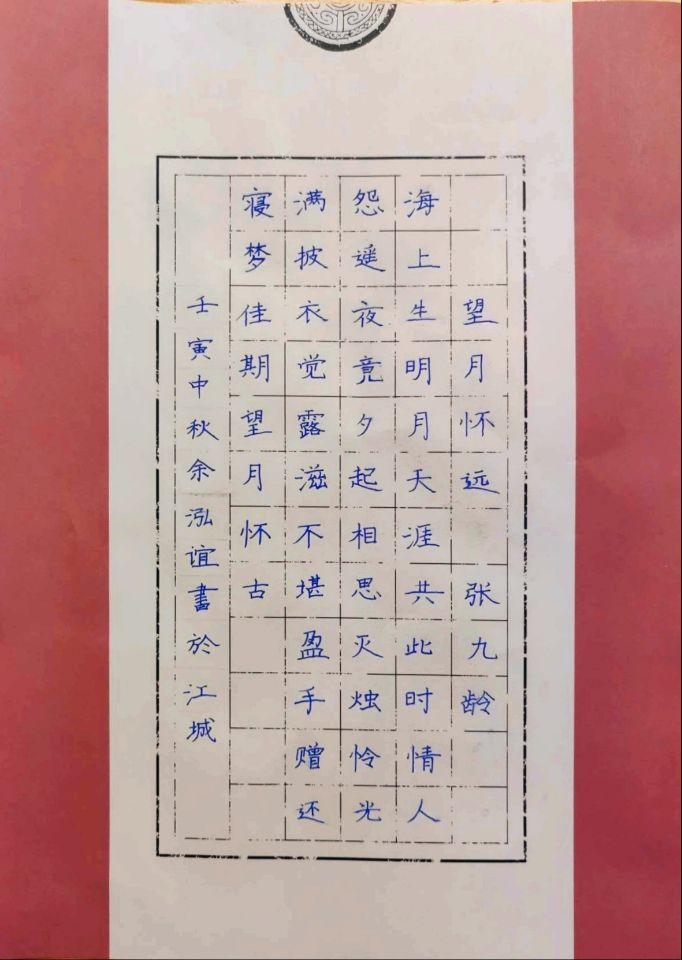 望月怀远 张九龄
海上生明月天涯共此时情人
怨遥夜竟夕起相思灭烛怜光
满披衣觉露滋不堪盈手赠还
寝梦佳期望月怀古
壬寅中秋余泓谊書於江城